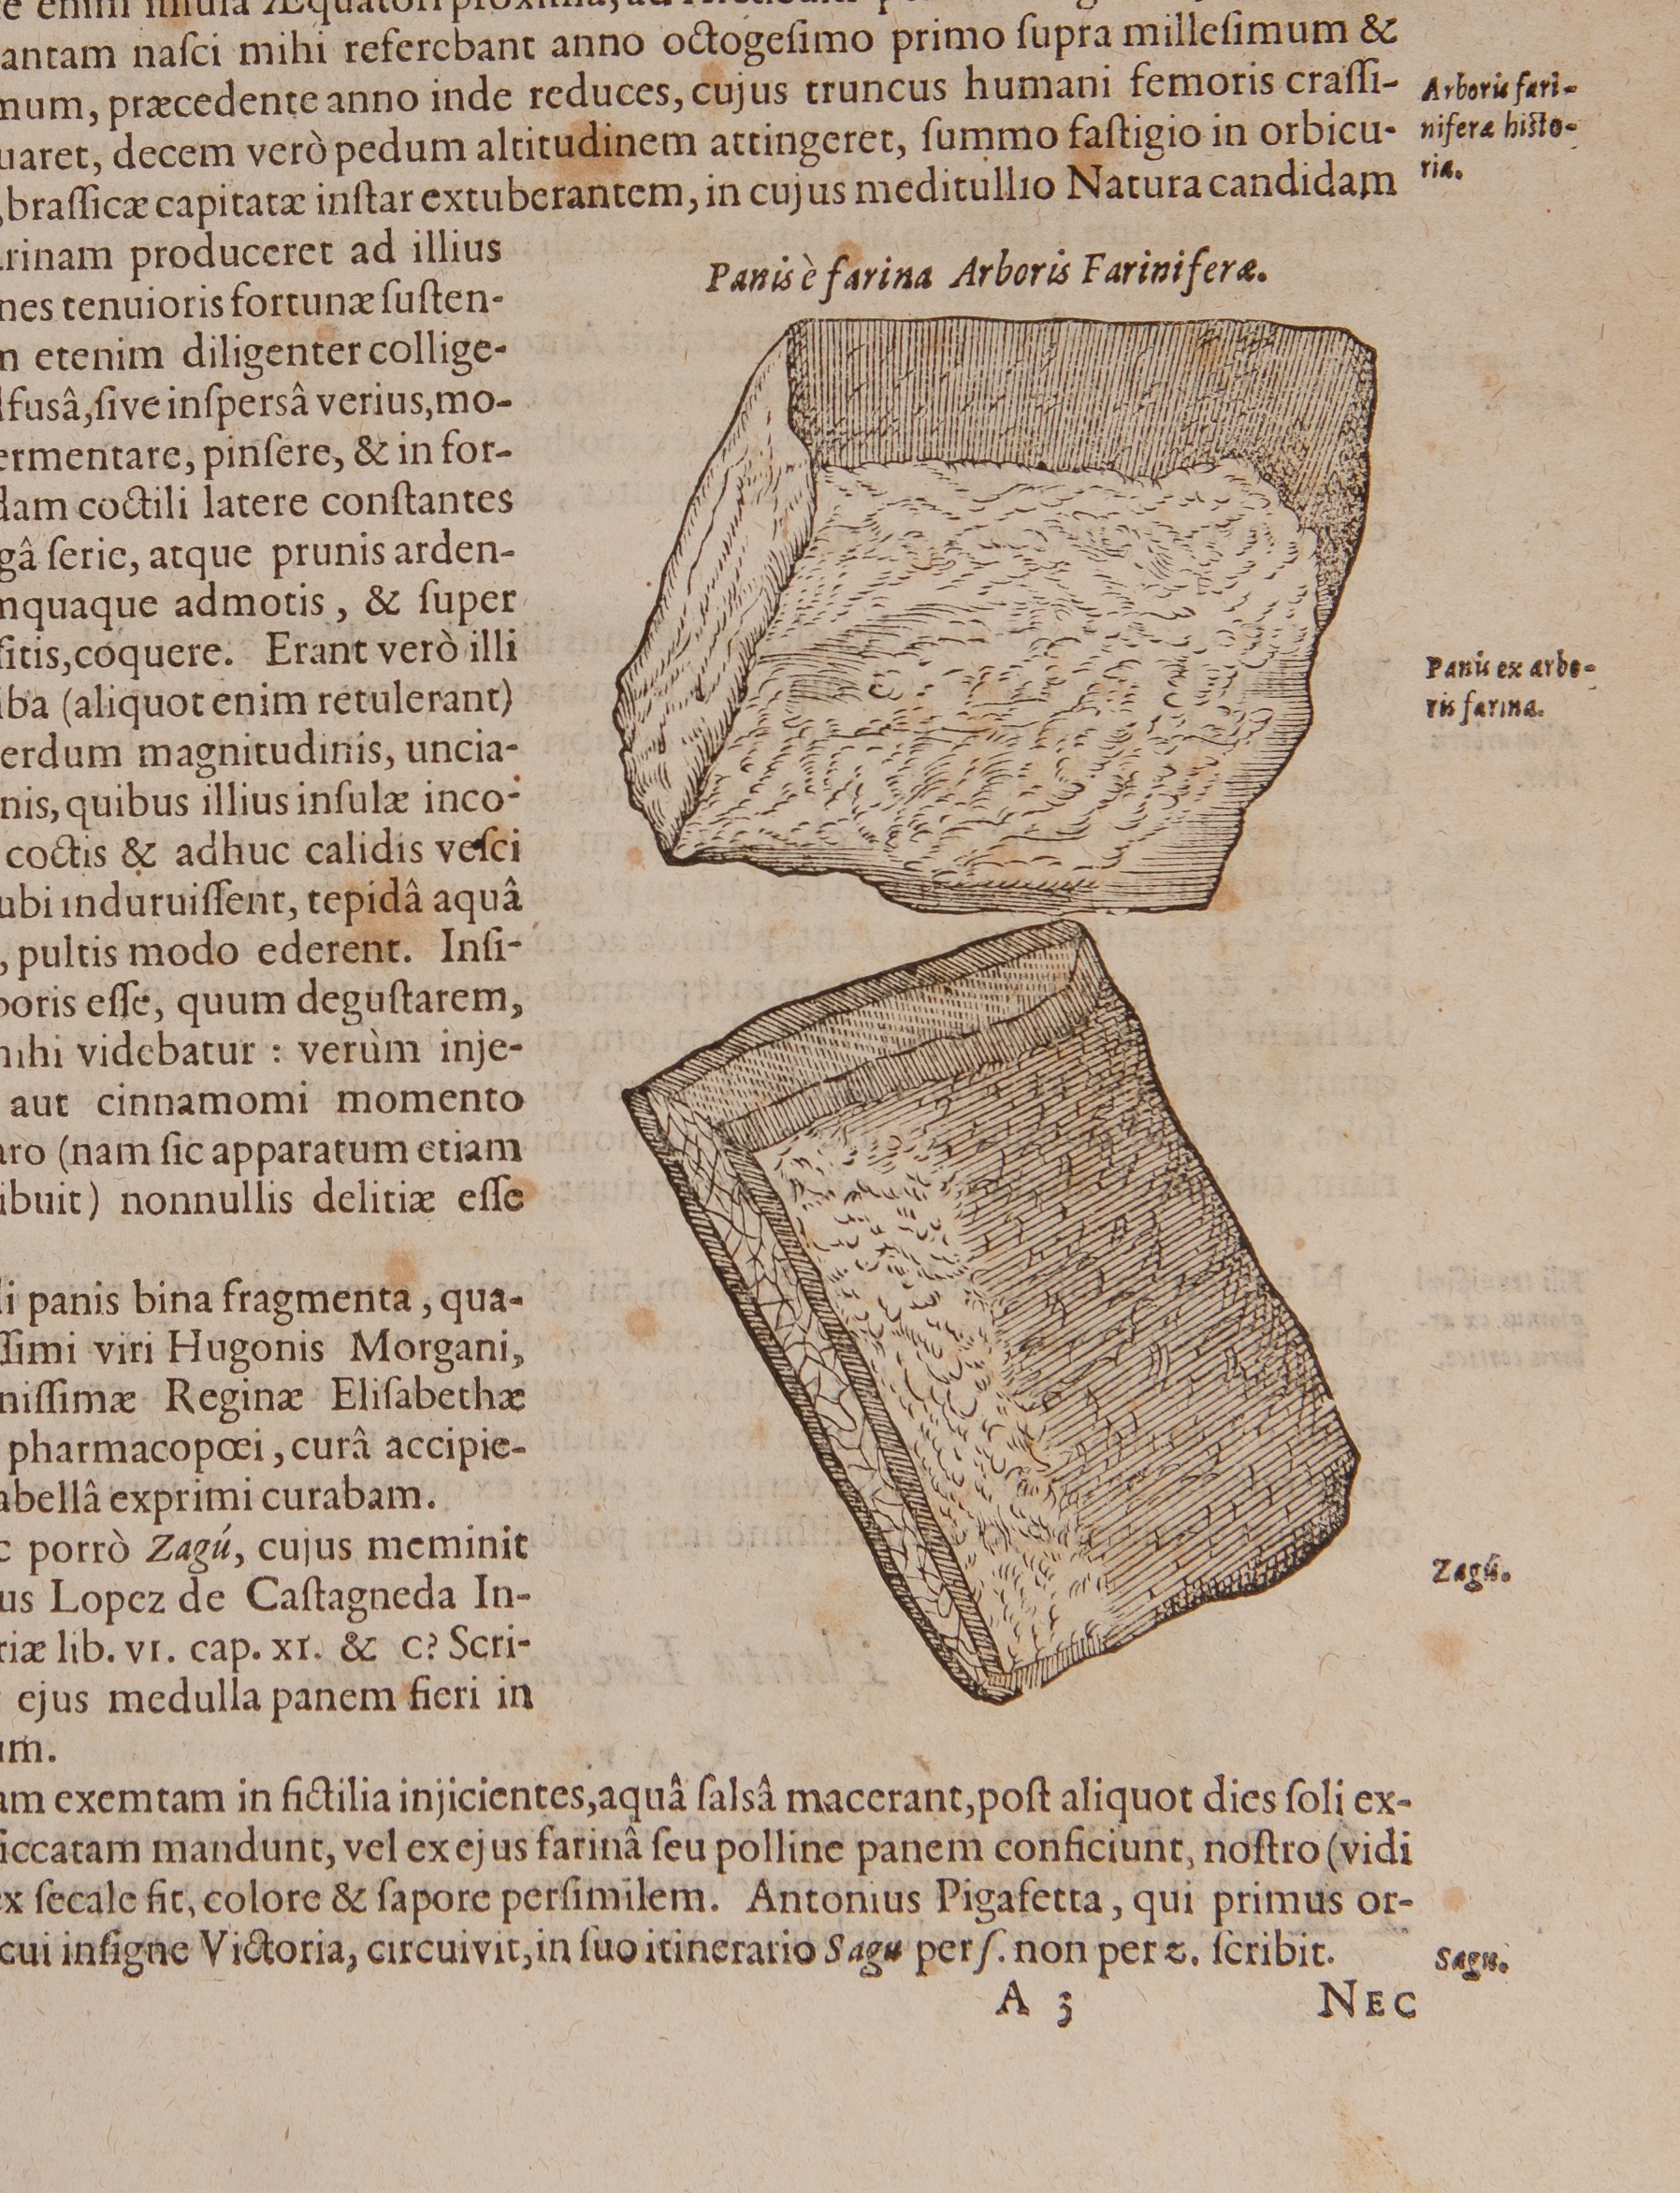 enim insula Æquatori proxima,
antam naſci mihi referebant anno octogeſimo primo ſupra milleſimum &
num, præcedente anno inde reduces, cujus truncus humani femoris craſſi-
uaret, decem verò pedum altitudinem attingeret, ſummo faſtigio in orbicu-
, braſſicæ capitatæ inſtar extuberantem, in cujus meditullio Natura candidam
Arboris fari-
niferæ hiſto-
ria.
rinam produceret ad illius
nes tenuioris fortunæ ſuſten-
m etenim diligenter collige-
fusâ, ſive inſpersâ verius, mo-
ermentare, pinſere, & in for-
dam coctili latere conſtantes
gâ ſerie, atque prunis arden-
nquaque admotis, & ſuper
ſitis, coquere. Erant verò illi
iba (aliquot enim retulerant)
erdum magnitudinis, uncia-
nis, quibus illius inſulæ inco-
coctis & adhuc calidis veſci
ubi induruiſſent, tepidâ aquâ
, pultis modo ederent. Inſi-
poris eſſe, quum deguſtarem,
mihi videbatur : verùm inje-
aut cinnamomi momento
aro (nam ſic apparatum etiam
ibuit) nonnullis delitiæ eſſe
li panis bina fragmenta, qua-
ſſimi viri Hugonis Morgani,
niſſimæ Reginæ Eliſabethæ
pharmacopœi, curâ accipie-
abellâ exprimi curabam.
c porrò Zagú, cujus meminit
us Lopez de Caſtagneda In-
riæ lib. VI. cap. XI. & C? Scri-
ejus medulla panem fieri in
um.
Panis è farina Arboris Fariniferæ.
Panis ex arbo-
ris farina.
Zagú.
am exemtam in fictilia injicientes, aquâ ſalsâ macerant, poſt aliquot dies ſoli ex-
ſiccatam mandunt, vel ex ejus farinâ ſeu polline panem conficiunt, noſtro (vidi
ex ſecale fit, colore & ſapore perſimilem. Antonius Pigafetta, qui primus or-
cui inſigne Victoria, circuivit, in ſuo itinerario Sagu per ſ. non per z. ſcribit.
Sagu.
A 3 NEC